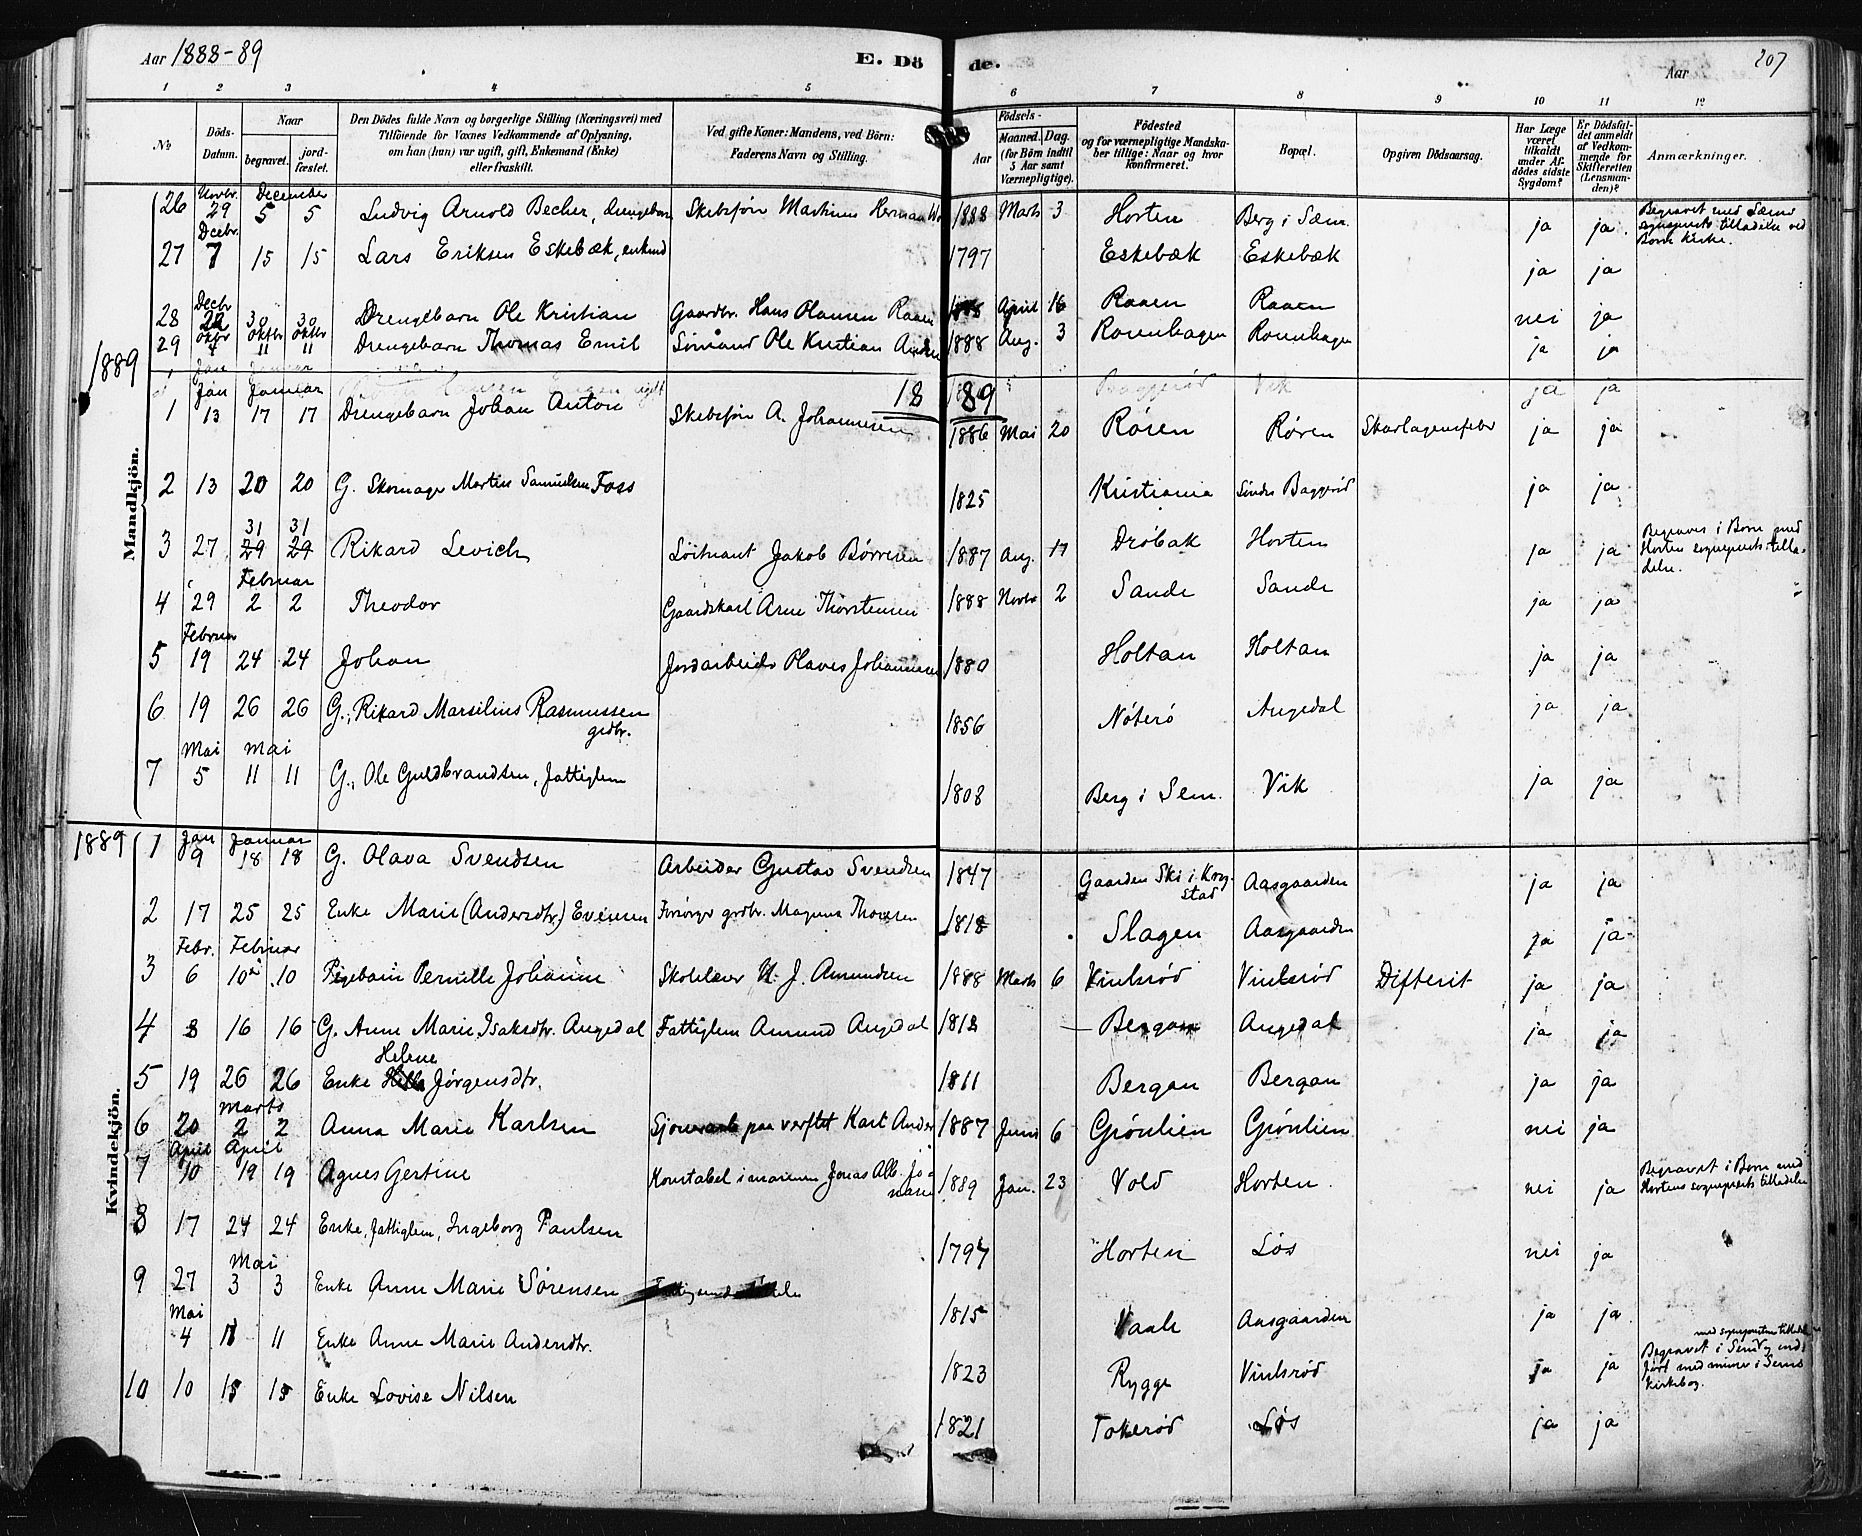 Aar 1888-89
E. Döde.
Aar
207
1 2 3 4 5 6 7 8 9 10 11 12
№
Döds-Datum.
Naar
begravet.
jord-fæstet.
Den Dödes fulde Navn og borgerlige Stilling (Næringsvei) med
Tilföiende for Voxnes Vedkommende af Oplysning,
om han (hun) var ugift, gift, Enkemand (Enke)
eller fraskilt.
Ved gifte Koner: Mandens, ved Börn:
Faderens Navn og Stilling.
Födsels-
Aar
Maaned. Dag.
(for Börn indtil
5 Aar samt
Værnepligtige).
Födested
og for værnepligtige Mandska-
ber tillige: Naar og hvor
konfirmeret.
Bopæl.
Opgiven Dödsaarsag.
Har Læge
været
tilkaldt
under Af-
dödes sidste
Sygdom?
Er Dödsfal-
det anmeldt
af Vedkom-
mende for
Skifteretten
(Lensman-
den)?
Anmærkninger.
Novbr. December
26 29 5 5 Ludvig Arnold Becher, drengebarn Skibsfør Martinus Herman 1888 Marts 3 Horten Berg i Sæm ja ja Begravet med Sæms sogneprests tilladelse ved Borre kirke.
Decbr.
27 7 15 15 Lars Eriksen Eskebæk, enkmd 1797 Eskebæk Eskebæk ja ja
Decbr
28 22 30 30 Drengebarn Ole Kristian Gaardbr. Hans Hansen Raaen 1888 April 16 Raaen Raaen nei ja
Oktbr Oktbr Oktbr
29 4 11 11 Drengebarn Thomas Emil Sömand Ole Kristian 1888 Aug. 3 Rosenhagen Rosenhagen ja ja
1889
1889
Mandkjön.
Jan Januar
1 13 17 17 Drengebarn Johan Anton Skibsfør A. Johannesen 1886 Mai 20 Røren Røren Skarlagensfeber ja ja
2 13 20 20 G. Skomager Martin Samuelsen Foss 1825 Kristiania Söndre Baggeröd ja ja
31 31
3 27 29 29 Rikard Levich Löitnant Jakob Børresen 1887 Aug. 17 Dröbak Horten ja ja Begraves i Borre med Horten sogneprests tilladelse.
Februar
4 29 2 2 Theodor Gaardskarl Arne Thorstensen 1888 Novbr 2 Sande Sande ja ja
Februar
5 19 24 24 Johan Jordarbeider Olaves Johannesen 1880 Holtan Holtan ja ja
6 19 26 26 G., Rikard Marsilius Rasmussen grdbr. 1856 Nöterö Augedal ja ja
Mai Mai
7 5 11 11 G., Ole Guldbrandsen, fattiglem 1808 Berg i Sem Vik ja ja
1889
Kvindekjön.
Jan Januar
1 9 18 18 G. Olava Svendsen Arbeider Gustav Svendsen 1847 Gaarden Ski i Krogstad Aasgaarden ja ja
2 17 25 25 Enke Marie (Andersdtr.) Evensen Forsörger grdbr. Magnus Thoresen 1818 Slagen Aasgaarden ja ja
Febr. Februar
3 6 10 10 Pigebarn Pernille Johanne Skolelærer J. Amundsen 1888 Marts 6 Vinlsröd Vinlsröd Difterit ja ja
4 8 16 16 G. Anne Marie Isaksdtr. Augedal Fattiglem Amund Augedal 1812 Bergan Augedal ja ja
Helene
5 19 26 26 Enke Jørgensdtr. 1811 Bergan Bergan ja ja
Marts
6 20 2 2 Anna Marie Karlsen paa verftet Karl Ander 1887 Juni 6 Grönlien Grönlien nei ja
April April
7 10 19 19 Agnes Gertine Konstabel i marinen Jonas Alb. Jonassen 1889 Jan. 23 Vold Horten nei ja Begravet i Borre med Hortens sogneprests tilladelse
8 17 24 24 Enke, fattiglem, Ingeborg Paulsen 1797 Horten Løs nei ja
Mai
9 27 3 3 Enke Anne Marie Sörensen 1815 Vaale Aasgaarden ja ja
Mai
4 11 11 Enke Anne Marie Andersdtr. 1823 Rygge Vinlsröd ja ja med sogneprestens tilladelse Begravet i Sem og indført med numer i Sems kirkebog.
10 10 15 15 Enke Lovise Nilsen 1821 Tokeröd Løs ja ja